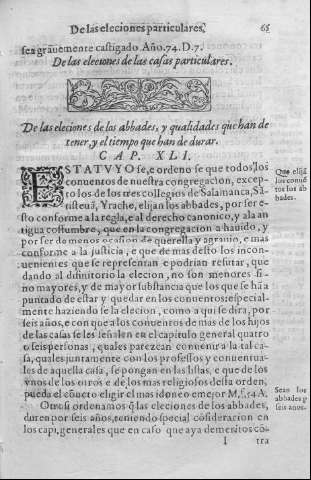 De las eleciones particulares. 65
sea grauemente castigado Año.74.D.7.
De las eleciones de las casas particulares.
De las eleciones de los abbades, y qualidades que han de
tener, y el tiempo que han de durar.
CAP. XLI.
ESTATVYOse, e ordeno se que todos los
conuentos de nuestra congregacion, excep-
to los de los tres collegios de Salamanca, Sã
Yrache, elijan los abbades, por ser e-
sto conforme a la regla, e al derecho canonico, y a la an
tigua costumbre, que en la congregacion a hauido, y
por ser de menos ocasion de querella y agrauio, e mas
conforme a la justicia, e que de mas desto los incon-
uenientes que se representan e podrian resultar, que
dando al difinitorio la elecion, no son menores si-
no mayores, y de mayor substancia que los que se hã a
puntado de estar y quedar en los conuentos: especial-
mente haziendo se la elecion, como a qui se dira, por
seis años, e con que a los conuentos de mas de los hijos
de las casas se les señalen en el capitulo general quatro
o seis personas, quales parezcan conuenir a la tal ca-
sa, quales juntamente con los professos y conuentua-
les de aquella casa, se pongan en las listas, e que de los
vnos de los otros e de los mas religiosos desta orden,
pueda el cõuẽto eligir el mas idoneo
Otrosi ordenamos q̃ las eleciones de los abbades,
duren por seis años, teniendo special cõsideracion en
los capi, generales que en caso que aya demeritos cõ-
I tra
Que elijã
los conuẽ
tos los ab
bades.
Sean los
abbades p
seis años.